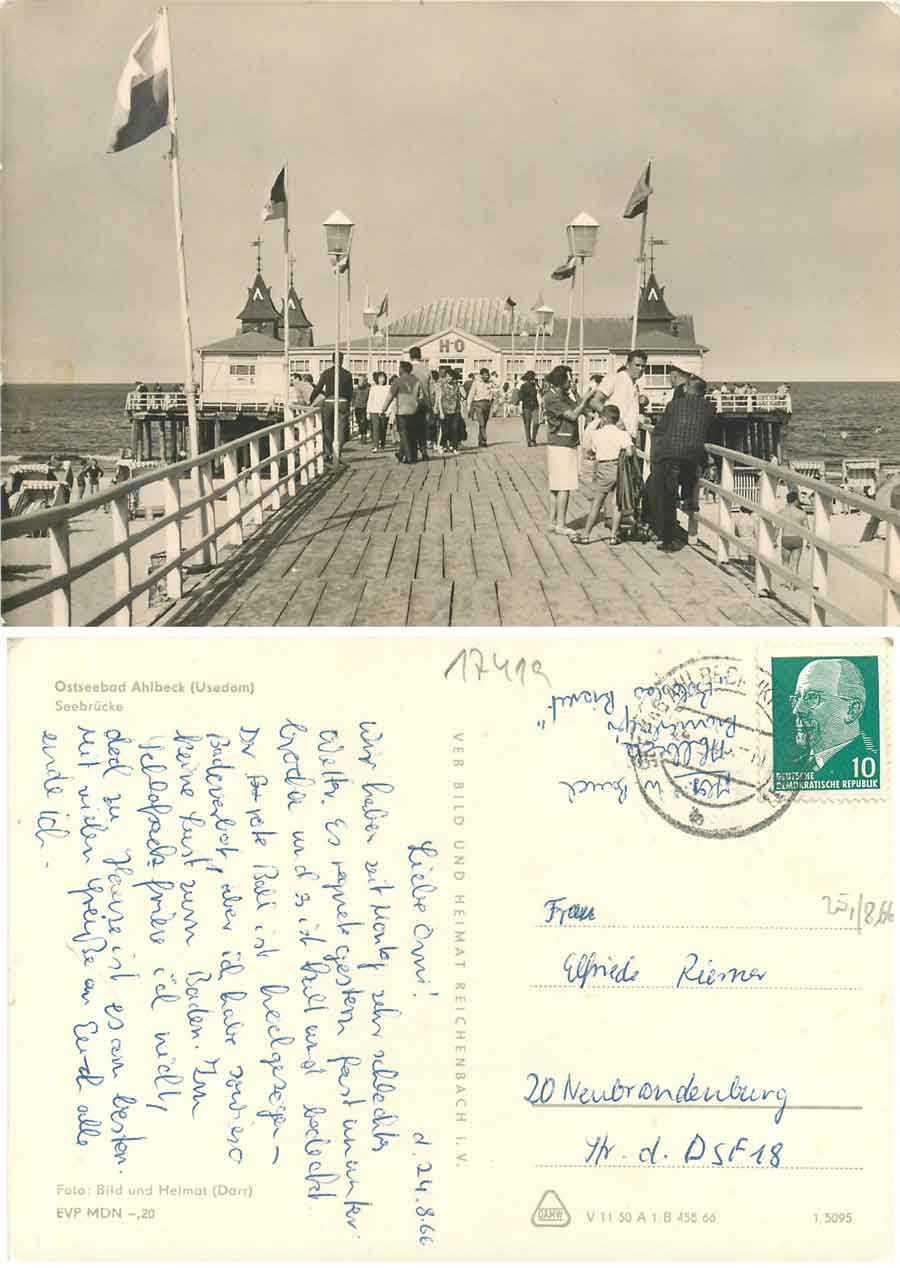 H-O
17419
Ostseebad Ahlbeck (Usedom)
Seebrücke
Liebe Omi! d. 24.8.66
Wir haben seit Montag sehr schlechtes
Wetter. Es regnete gestern fast ununter-
broche und es ist kalt und bedeckt.
Die Ball ist hochgezogen -
Badeverbot, aber ich habe sowieso
keine Lust zum Baden. Im
Schlafsack friere ich nicht,
doch zu Hause ist es am besten.
Mit vielen Grüße an Euch alle
ende ich.
Foto: Bild und Heimat (Darr)
EVP MDN -,20
VEB BILD UND HEIMAT REICHENBACH i. V.
Ahlbeck
10
DEUTSCHE
DEMOKRATISCHE REPUBLIK
25,/8.66
Frau
Elfriede Riemer
20 Neubrandenburg
Str. d. DSF 18
DAHW
V 11 50 A 1/B 458/66
1/5095